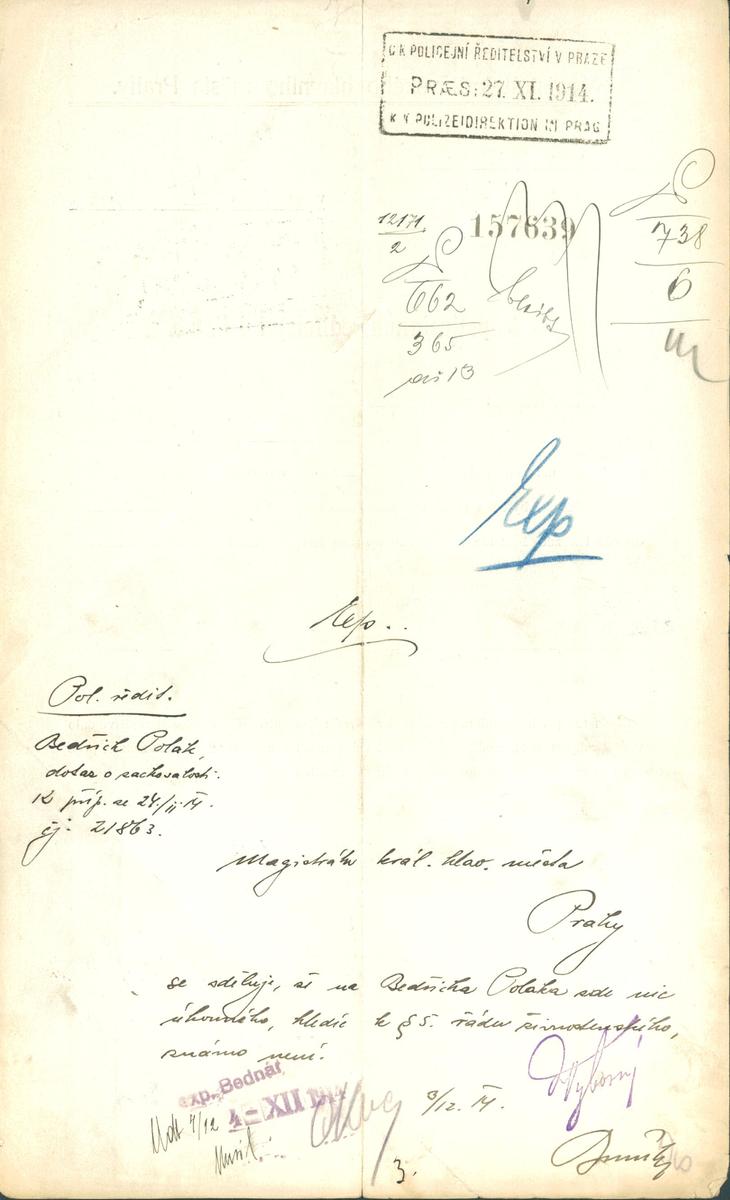 C.K. POLICEJNÍ ŘEDITELSTVÍ V PRAZE
PRÆS: 27. XI. 1914.
K.K. POLIZEIDIREKTION IN PRAG
12171
2
157639
P
738
6
P
662
365
Exp
Exp..
Pol. ředit.
Bedřich Polak,
dotaz o zachovalosti.
K příp. ze 24./11. 14.
čj. 21863.
Magistrátu král. hlav. města
Prahy
se sděluje, že na Bedřicha Polaka zde nic
úhonného, hledíc k § 5. řádu živnostenského,
známo není.
exp. Bednář
4 - XII 1914
3/12. 14.
Výborný
4/12
3.